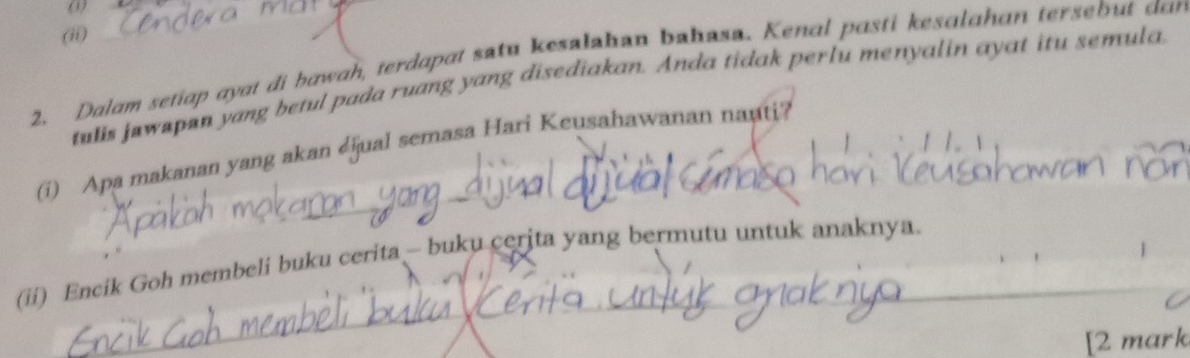 (i)
(ii) Cendera mat
2. Dalam setiap ayat di bawah, terdapat satu kesalahan bahasa. Kenal pasti kesalahan tersebut dan
tulis jawapan yang betul pada ruang yang disediakan. Anda tidak perlu menyalin ayat itu semula.
(i) Apa makanan yang akan dijual semasa Hari Keusahawanan nanti?
Apakah makanan yang dijual dijual semasa hari keusahawan nan
(ii) Encik Goh membeli buku cerita – buku cerita yang bermutu untuk anaknya.
Encik Goh membeli buku cerita untuk anaknya
[2 mark